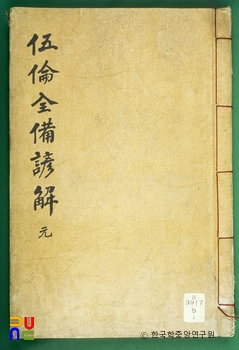 伍倫全備諺解
元
3917
9
1
© 한국학중앙연구원